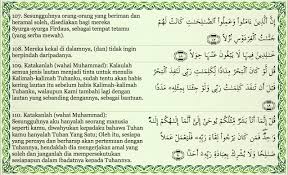 107. Sesungguhnya orang-orang yang beriman dan
beramal soleh, disediakan bagi mereka
Syurga-syurga Firdaus, sebagai tempat tetamu
(yang serba mewah).
108. Mereka kekal di dalamnya, (dan) tidak ingin
berpindah daripadanya.
109. Katakanlah (wahai Muhammad): Kalaulah
semua jenis lautan menjadi tinta untuk menulis
Kalimah-kalimah Tuhanku, sudah tentu akan habis
kering lautan itu sebelum habis Kalimah-kalimah
Tuhanku, walaupun Kami tambahi lagi dengan
lautan yang sebanding dengannya, sebagai bantuan.
110. Katakanlah (wahai Muhammad):
Sesungguhnya aku hanyalah seorang manusia
seperti kamu, diwahyukan kepadaku bahawa Tuhan
kamu hanyalah Tuhan Yang Satu; Oleh itu, sesiapa
yang percaya dan berharap akan pertemuan dengan
Tuhannya, hendaklah ia mengerjakan amal yang
soleh dan janganlah ia mempersekutukan
sesiapapun dalam ibadatnya kepada Tuhannya.
إِنَّ الَّذِينَ ءَامَنُوا وَعَمِلُوا الصَّلِحَتِ كَانَتْ لَهُمْ
جَنَّتُ الْفِرْدَوْسِ نُزُلًا
خَلِدِينَ فِيهَا لَا يَبْغُونَ عَنْهَا حِوَلًا
قُل لَّوْ كَانَ الْبَحْرُ مِدَادًا لِّكَلِمَتِ رَبِّي لَنَفِدَ الْبَحْرُ
قَبْلَ أَن تَنفَدَ كَلِمَتُ رَبِّي وَلَوْ جِئْنَا بِمِثْلِهِ مَدَدًا
قُلْ إِنَّمَا أَنَا بَشَرٌ مِّثْلُكُمْ يُوحَى إِلَيَّ أَنَّمَا إِلَهُكُمْ إِلَهٌ وَحِدٌ
فَمَن كَانَ يَرْجُوا لِقَاءَ رَبِّهِ فَلْيَعْمَلْ عَمَلًا
صَلِحًا وَلَا يُشْرِكْ بِعِبَادَةِ رَبِّهِ أَحَدًا